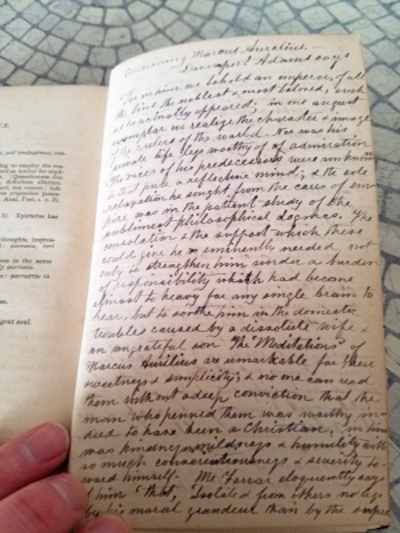 Concerning Marcus Aurelius. —
Davenport Adams says
"In him we behold an emperor, of all
the line the noblest & most beloved, such
as he actually appeared; in one august
exemplar we realize the character & image
of the rulers of the world. Nor was his
private life less worthy of admiration
The vices of his predecessors were unknown
to that pure & reflective mind; & the sole
relaxation he sought from the cares of em-
pire was in the patient study of the
sublimest philosophical dogmas. The
consolation & the support which these
could give he eminently needed, not
only to strengthen him under a burden
of responsibility which had become
almost to heavy for any single brain to
bear, but to soothe him in the domestic
troubles caused by a dissolute wife &
an ungrateful son The "Meditations" of
Marcus Aurilius are remarkable for their
sweetness & simplicity; & no one can read
them without a deep conviction that the
man who penned them was worthy in-
deed to have been a Christian, in him
was kindness, mildness & humility with
so much conscientiousness & severity to-
ward himself. Mr. Farrar eloquently says
of him "that, "Isolated from others no less
by his moral grandeur than by the supre
2.
thoughts, impres-
in the same